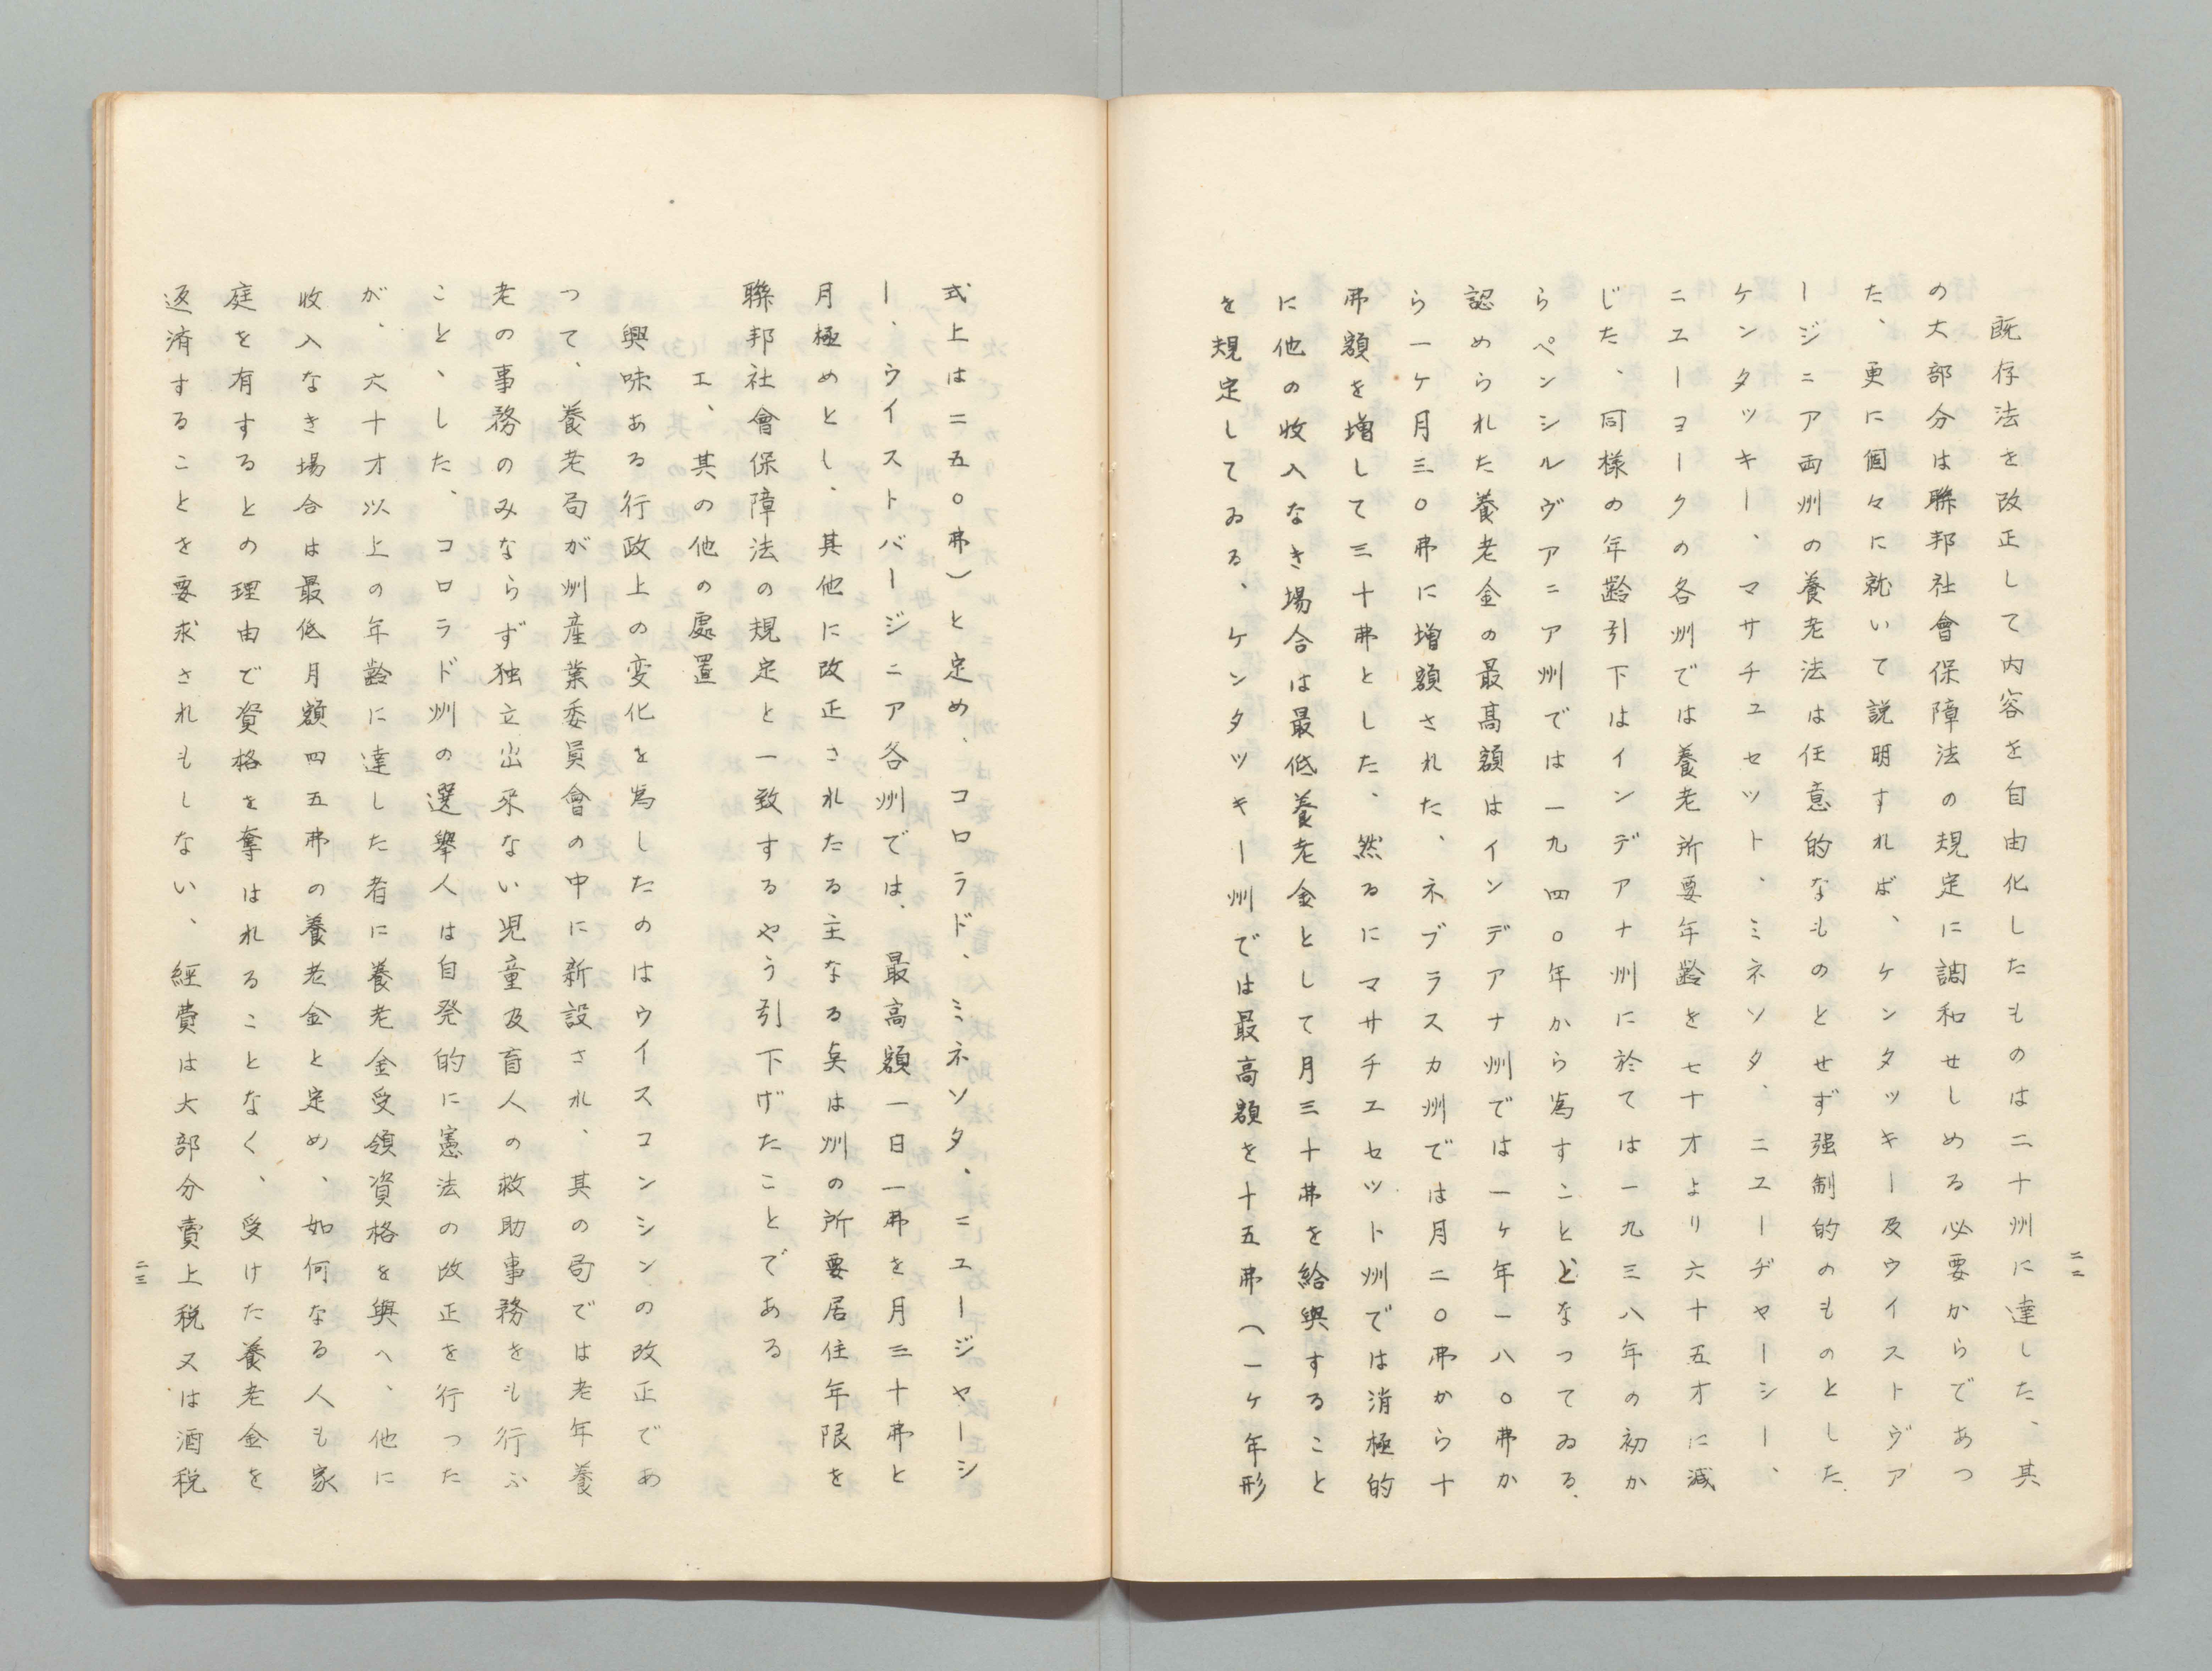 二二
既存法を改正して内容を自由化したものは二十州に達した、其
の大部分は聯邦社會保障法の規定に調和せしめる必要からであつ
た、更に個々に就いて説明すれば、ケンタッキー及ウイストヴア
ージニア両州の養老法は任意的なものとせず强制的のものとした、
ケンタッキー、マサチユセット、ミネソタ、ニユーヂャーシー、
ニユーヨークの各州では養老所要年齢を七十才より六十五才に減
じた、同様の年齢引下はインデアナ州に於ては一九三八年の初か
らペンシルヴアニア州では一九四〇年から爲すことゝなつてゐる、
認められた養老金の最高額はインデアナ州では一ヶ年一八〇弗か
ら一ヶ月三〇弗に増額された、ネブラスカ州では月二〇弗から十
弗額を増して三十弗とした、然るにマサチエセット州では消極的
に他の收入なき場合は最低養老金として月三十弗を給與すること
を規定してゐる、ケンタッキー州では最高額を十五弗（一ヶ年形
式上は二五〇弗）と定め、コロラド、ミネソタ、ニユージャーシ
ー、ウイストバージニア各州では、最高額一日一弗を月三十弗と
月極めとし、其他に改正されたる主なる点は州の所要居住年限を
聯邦社會保障法の規定と一致するやう引下げたことである
エ、其の他の處置
興味ある行政上の変化を爲したのはウイスコンシンの改正であ
つて、養老局が州産業委員會の中に新設され、其の局では老年養
老の事務のみならず独立出来ない児童及盲人の救助事務をも行ふ
こと、した、コロラド州の選擧人は自発的に憲法の改正を行つた
が、六十才以上の年齢に達した者に養老金受領資格を與へ、他に
收入なき場合は最低月額四五弗の養老金と定め、如何なる人も家
庭を有するとの理由で資格を奪はれることなく、受けた養老金を
返済することを要求されもしない、経費は大部分賣上税又は酒税
二三